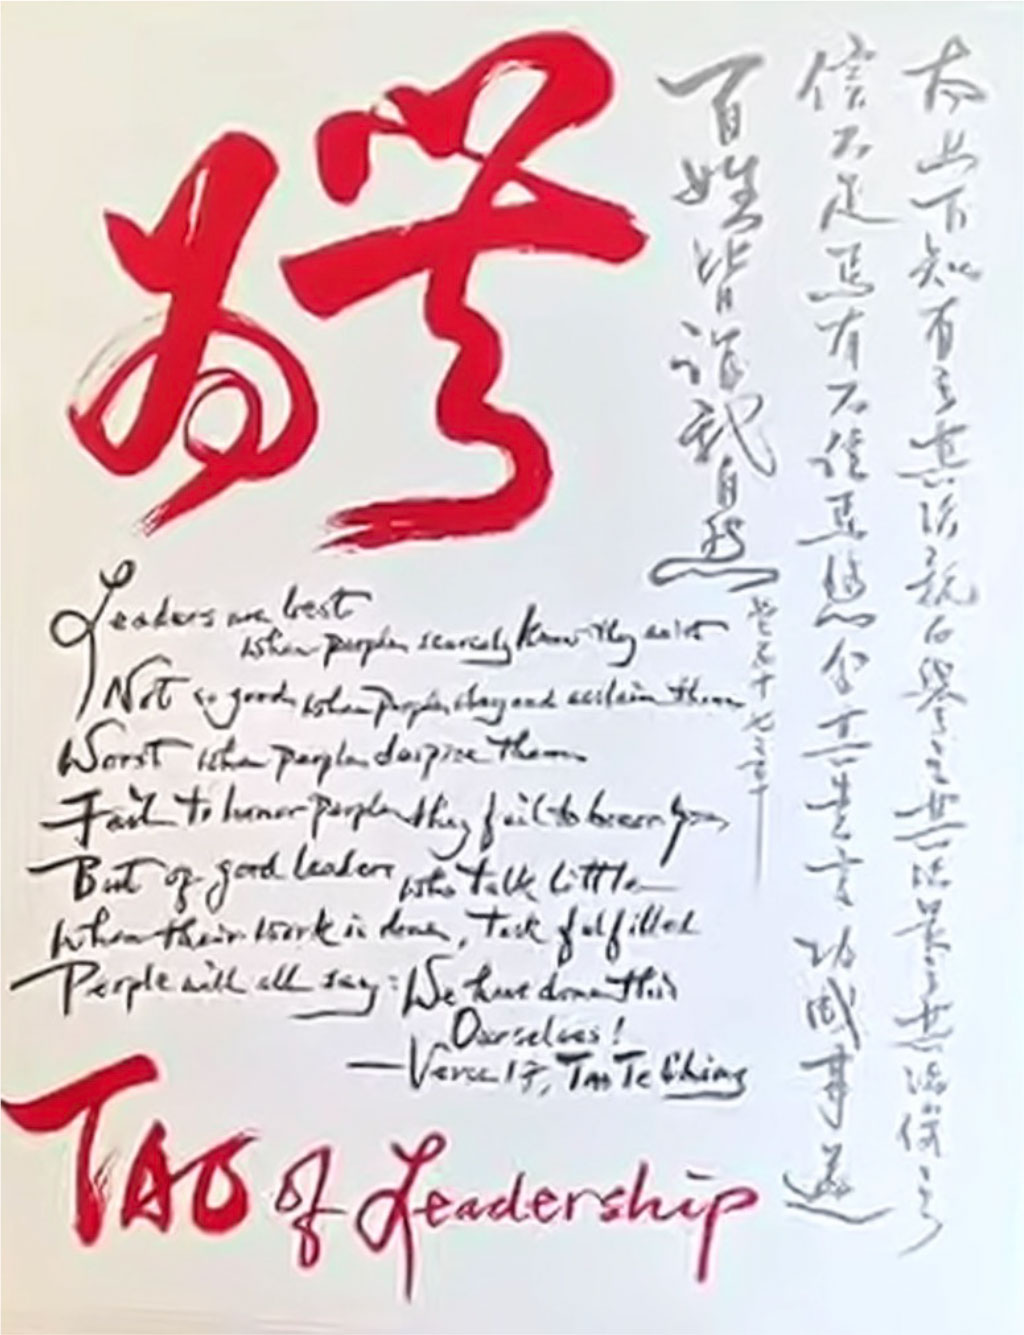 無為
太上下知有之其次親而譽之其次畏之其次侮之
信不足焉有不信焉悠兮其貴言功成事遂
百姓皆謂我自然
老子十七章
Leaders are best
when people scarcely know they exist
Not so good when people obey and acclaim them
Worst when people despise them
Fail to honor people they fail to honor you,
But of good leaders who talk little
When their work is done, task fulfilled
People will all say: We have done this
Ourselves!
—Verse 17, Tao Te Ching
TAO of Leadership